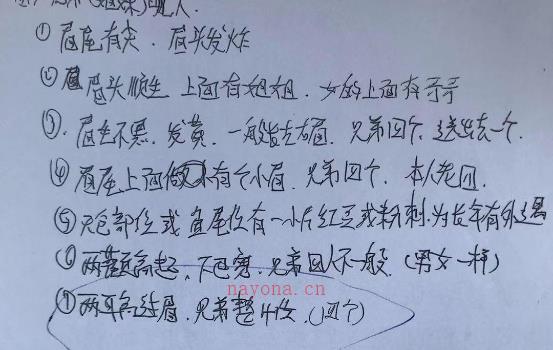 ① 眉尾有尖．眉头发炸
② 眉头顺生 上面有姐姐．女的上面有哥哥
③．眉毛不黑．发黄．一般指左右眉．兄弟四个．送出去一个．
④ 眉尾上面 有个小眉．兄弟四个．本人老四．
⑤ 夫仓部位或鱼尾位有一小片红豆或粉刺．为长年有外遇
⑥ 两 高起．下巴宽．兄弟四人不一般．(男女一样)
⑦ 两耳高过眉．兄弟整4位．(四个)
nayona.cn